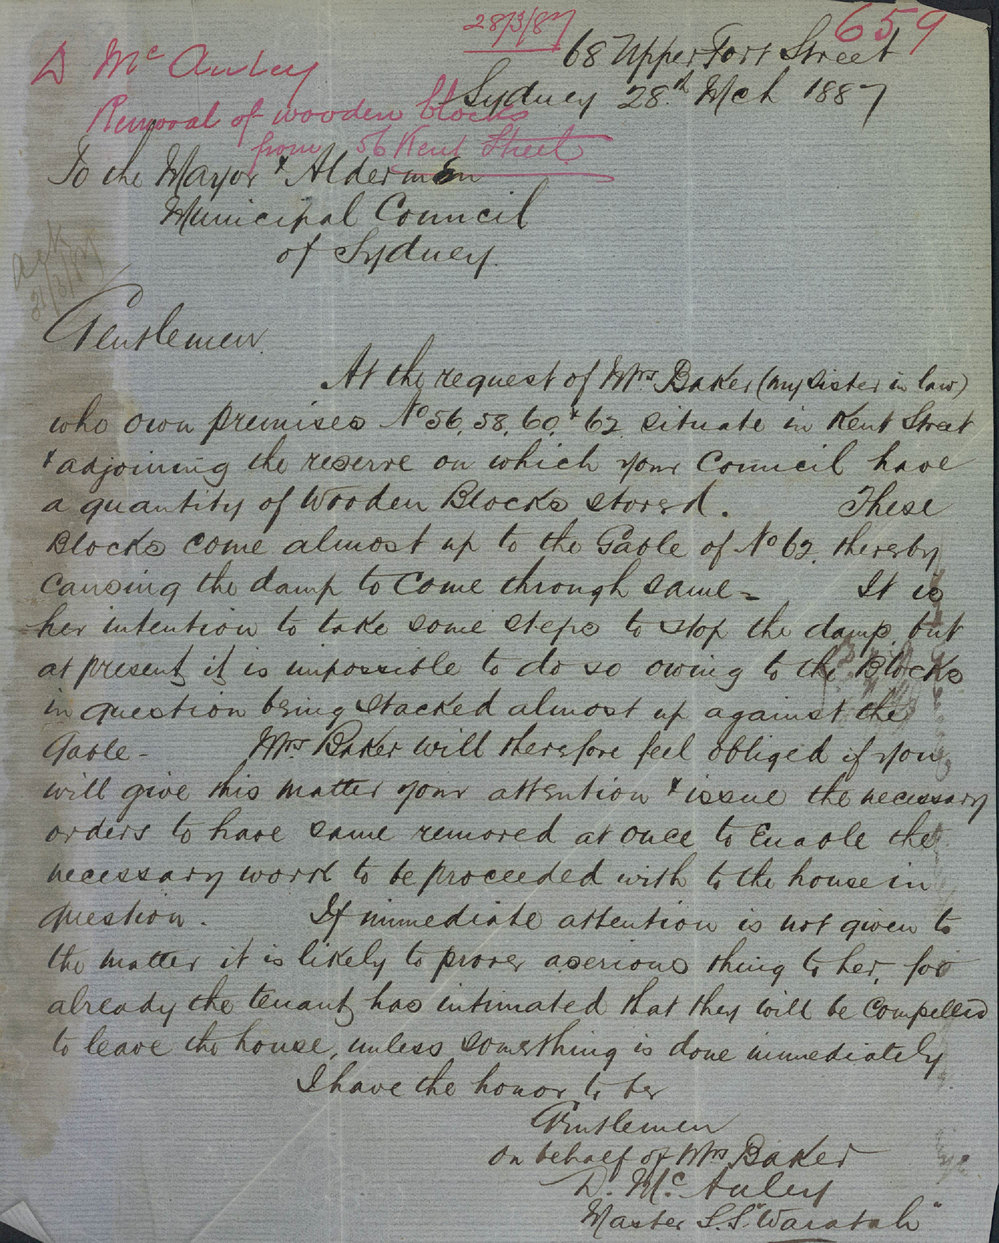 28/3/87
659
D McAuley
Removal of wooden blocks
from 56 Kent Street
68 Upper Fort Street
Sydney 28th Mch 1887
To the Mayor & Aldermen
Municipal Council
of Sydney.
Ack
31/3/87
Gentlemen
At the request of Mrs Baker (my sister in law)
who own premises No 56, 58, 60, & 62 situate in Kent Street
& adjoining the reserve on which your Council have
a quantity of Wooden Blocks stored. These
Blocks come almost up to the Gable of No 62, thereby
causing the damp to come through same - It is
her intention to take some steps to stop the damp, but
at present it is impossible to do so owing to the Blocks
in question being stacked almost up against the
Gable - Mrs Baker will therefore feel obliged if you
will give this matter your attention & issue the necessary
orders to have same removed at once to Enable the
necessary work to be proceeded with to the house in
question. If immediate attention is not given to
the matter it is likely to prove a serious thing to her, for
already the tenant has intimated that they will be compelled
to leave the house, unless something is done immediately
I have the honor to be
Gentlemen
On behalf of Mrs Baker
D. McAuley
Master S.S. "Waratah"